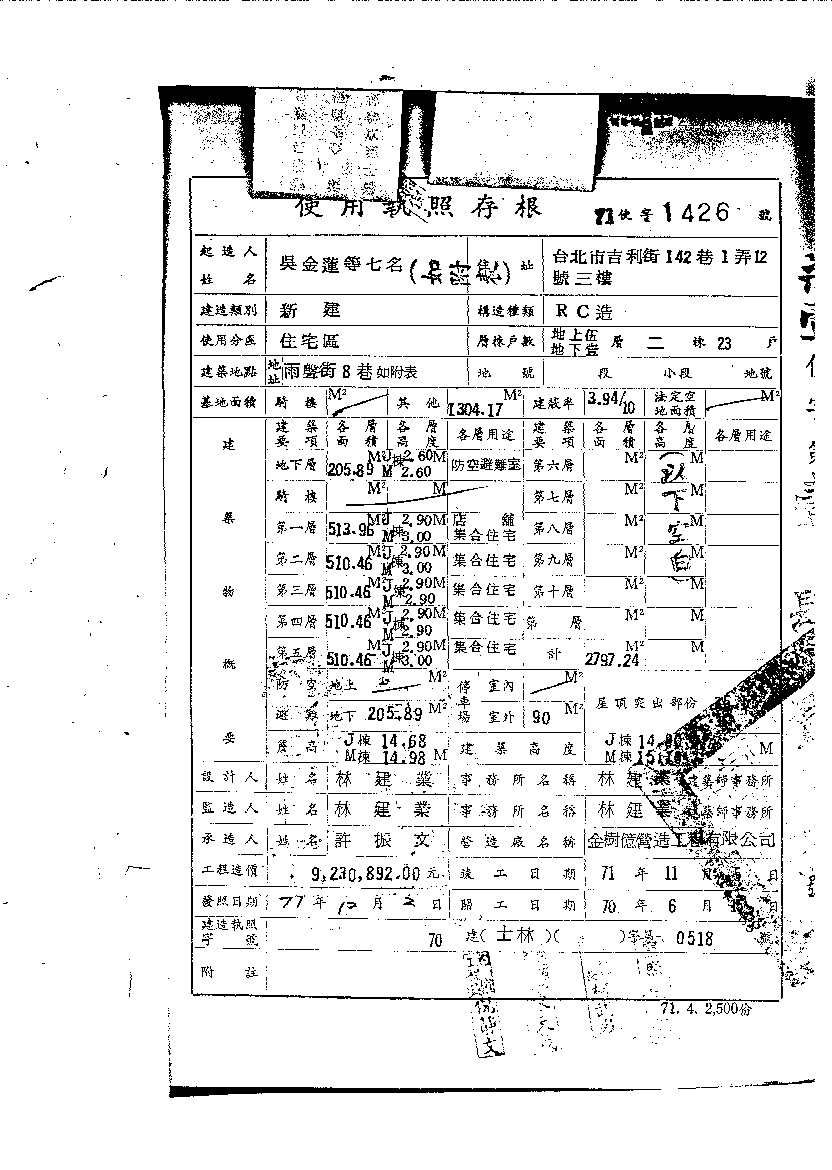 使用執照存根 71使字1426號
起造人姓名 吳金蓮等七名 住址 台北市吉利街142巷1弄12號三樓
建造類別 新建 構造種類 RC造
使用分區 住宅區 層棟戶數 地上伍地下壹層 二棟 23戶
建築地點 地址 雨聲街8巷如附表 地號 段 小段 地號
基地面積 騎樓 M² 其他 1304.17 M² 建蔽率 3.94/10 法定空地面積 M²
建築物概要
建築要項 各層面積 各層高度 各層用途 建築要項 各層面積 各層高度 各層用途
地下層 205.89 M² J棟 2.60M M 2.60 防空避難室 第六層 M² (以 M
騎樓 M² M 第七層 M² 下 M
第一層 513.96 M² J棟 2.90M M 3.00 店舖 集合住宅 第八層 M² 空 M
第二層 510.46 M² J棟 2.90M M 3.00 集合住宅 第九層 M² 白) M
第三層 510.46 M² J棟 2.90M M 2.90 集合住宅 第十層 M² M
第四層 510.46 M² J棟 2.90M M 2.90 集合住宅 第 層 M² M
第五層 510.46 M² J棟 2.90M M 3.00 集合住宅 計 2797.24 M² M
防空避難 地上 M² 停車場 室內 M² 屋頂突出部份
地下 205.89 M² 室外 90 M²
簷高 J棟 14.68 M棟 14.98 M 建築高度 J棟 14. M棟 15. M
設計人 姓名 林建業 事務所名稱 林建業建築師事務所
監造人 姓名 林建業 事務所名稱 林建業建築師事務所
承造人 姓名 許振文 營造廠名稱 金樹億營造工程有限公司
工程造價 9,230,892.00元 竣工日期 71年11月 日
發照日期 71年12月2日 開工日期 70年6月 日
建造執照字號 70 建(士林)( )字第0518號
附註
71.4.2,500份